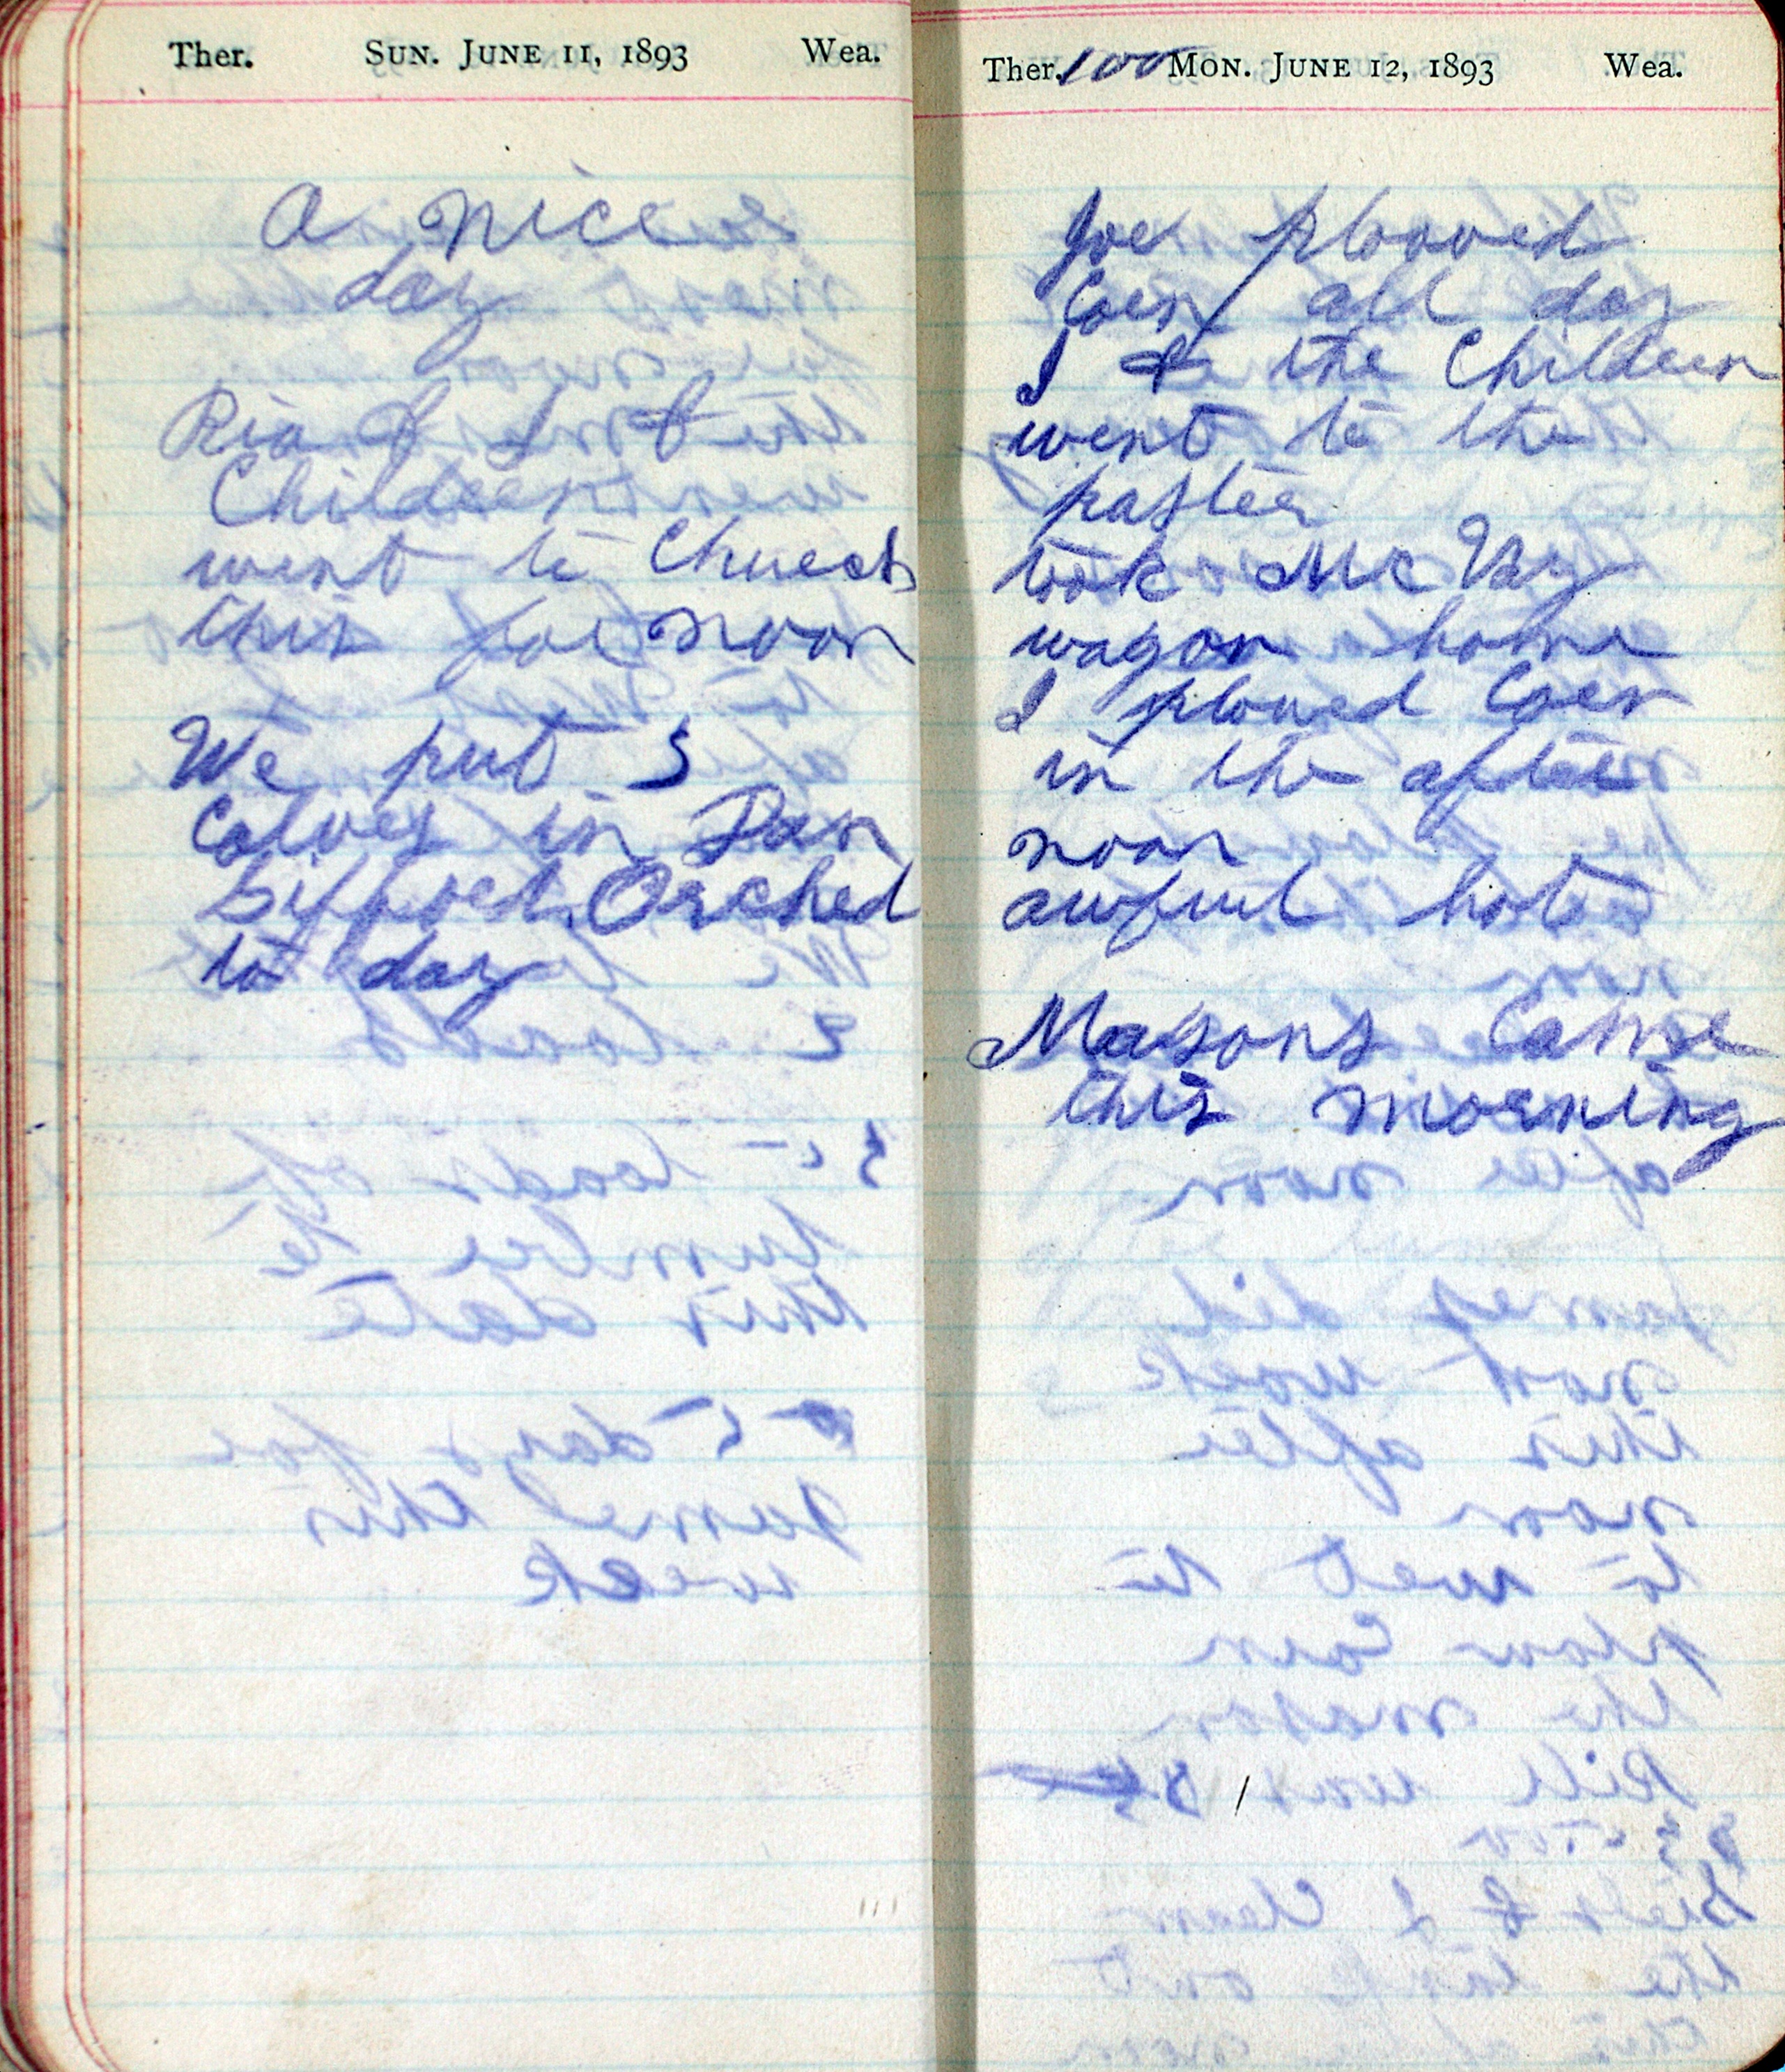 Ther. SUN. JUNE 11, 1893 Wea.
A nice
day
Ria & I &
Childeen
went to Chuech
this foe noon
We put 5
Calves in Dan
Orched
to day
Ther. 100 MON. JUNE 12, 1893 Wea.
Joe plooved
Coen all day
I & the Childeen
went to the
pastee
took Mc Vay
wagon home
I plowed Coen
in the aftee
noon
awfull hot
Masons Came
this moening